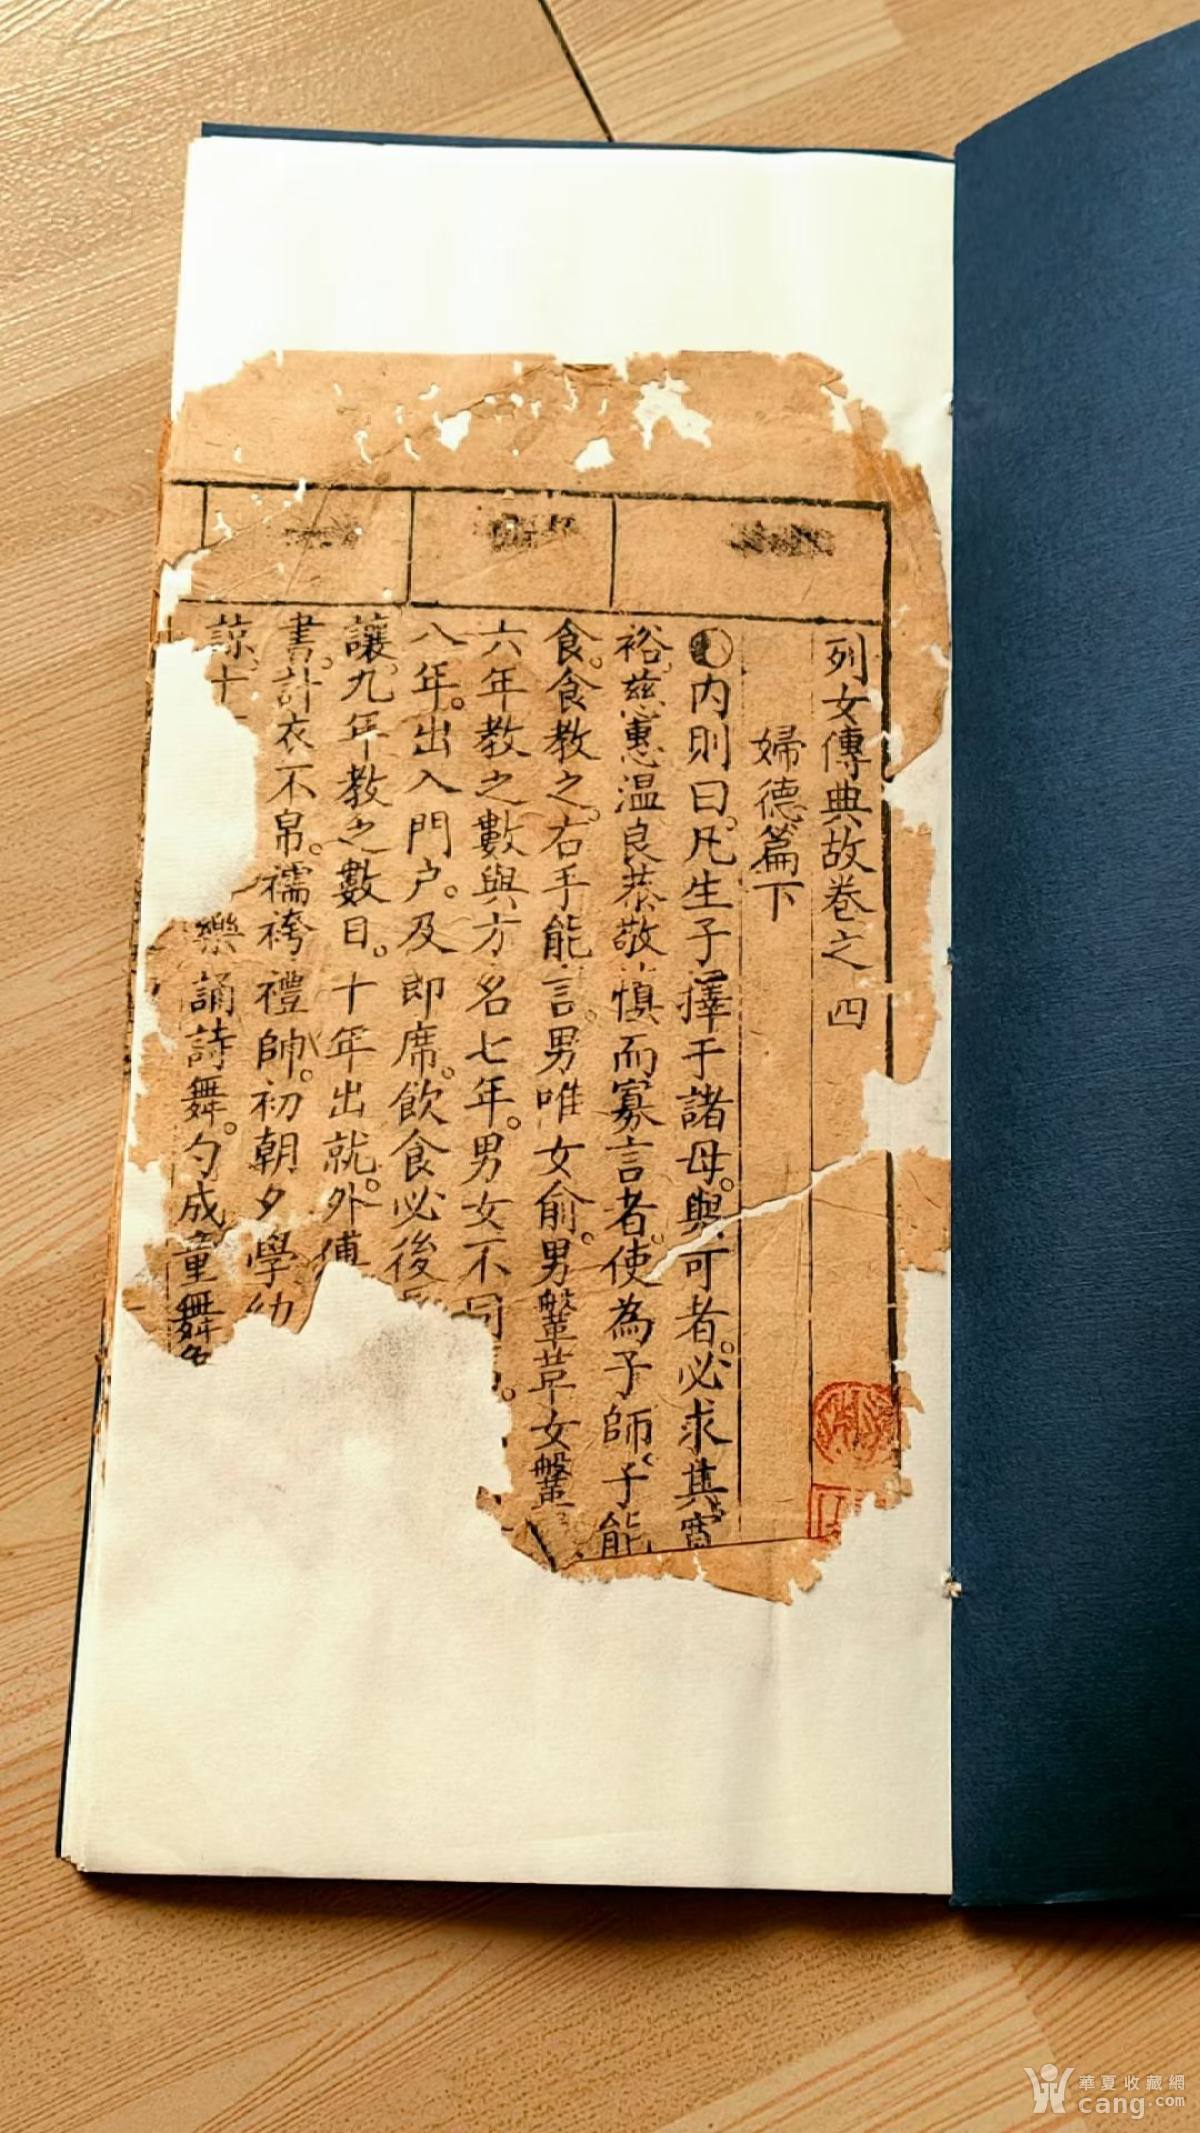 列女傳典故卷之四
婦德篇下
内則曰。凡生子擇于諸母。與可者。必求其寬
裕。慈惠温良恭敬慎而寡言者。使為子師。子能
食。食教之。右手能言。男唯女俞。男鞶革女鞶
六年教之數與方名七年。男女不同
八年。出入門户。及即席。飲食必後
讓。九年教之數日。十年出就。外傅
書。計衣不帛。襦袴禮帥。初朝夕學幼
諒。十
樂誦詩舞。勺成童舞
華夏收藏網
cang.com